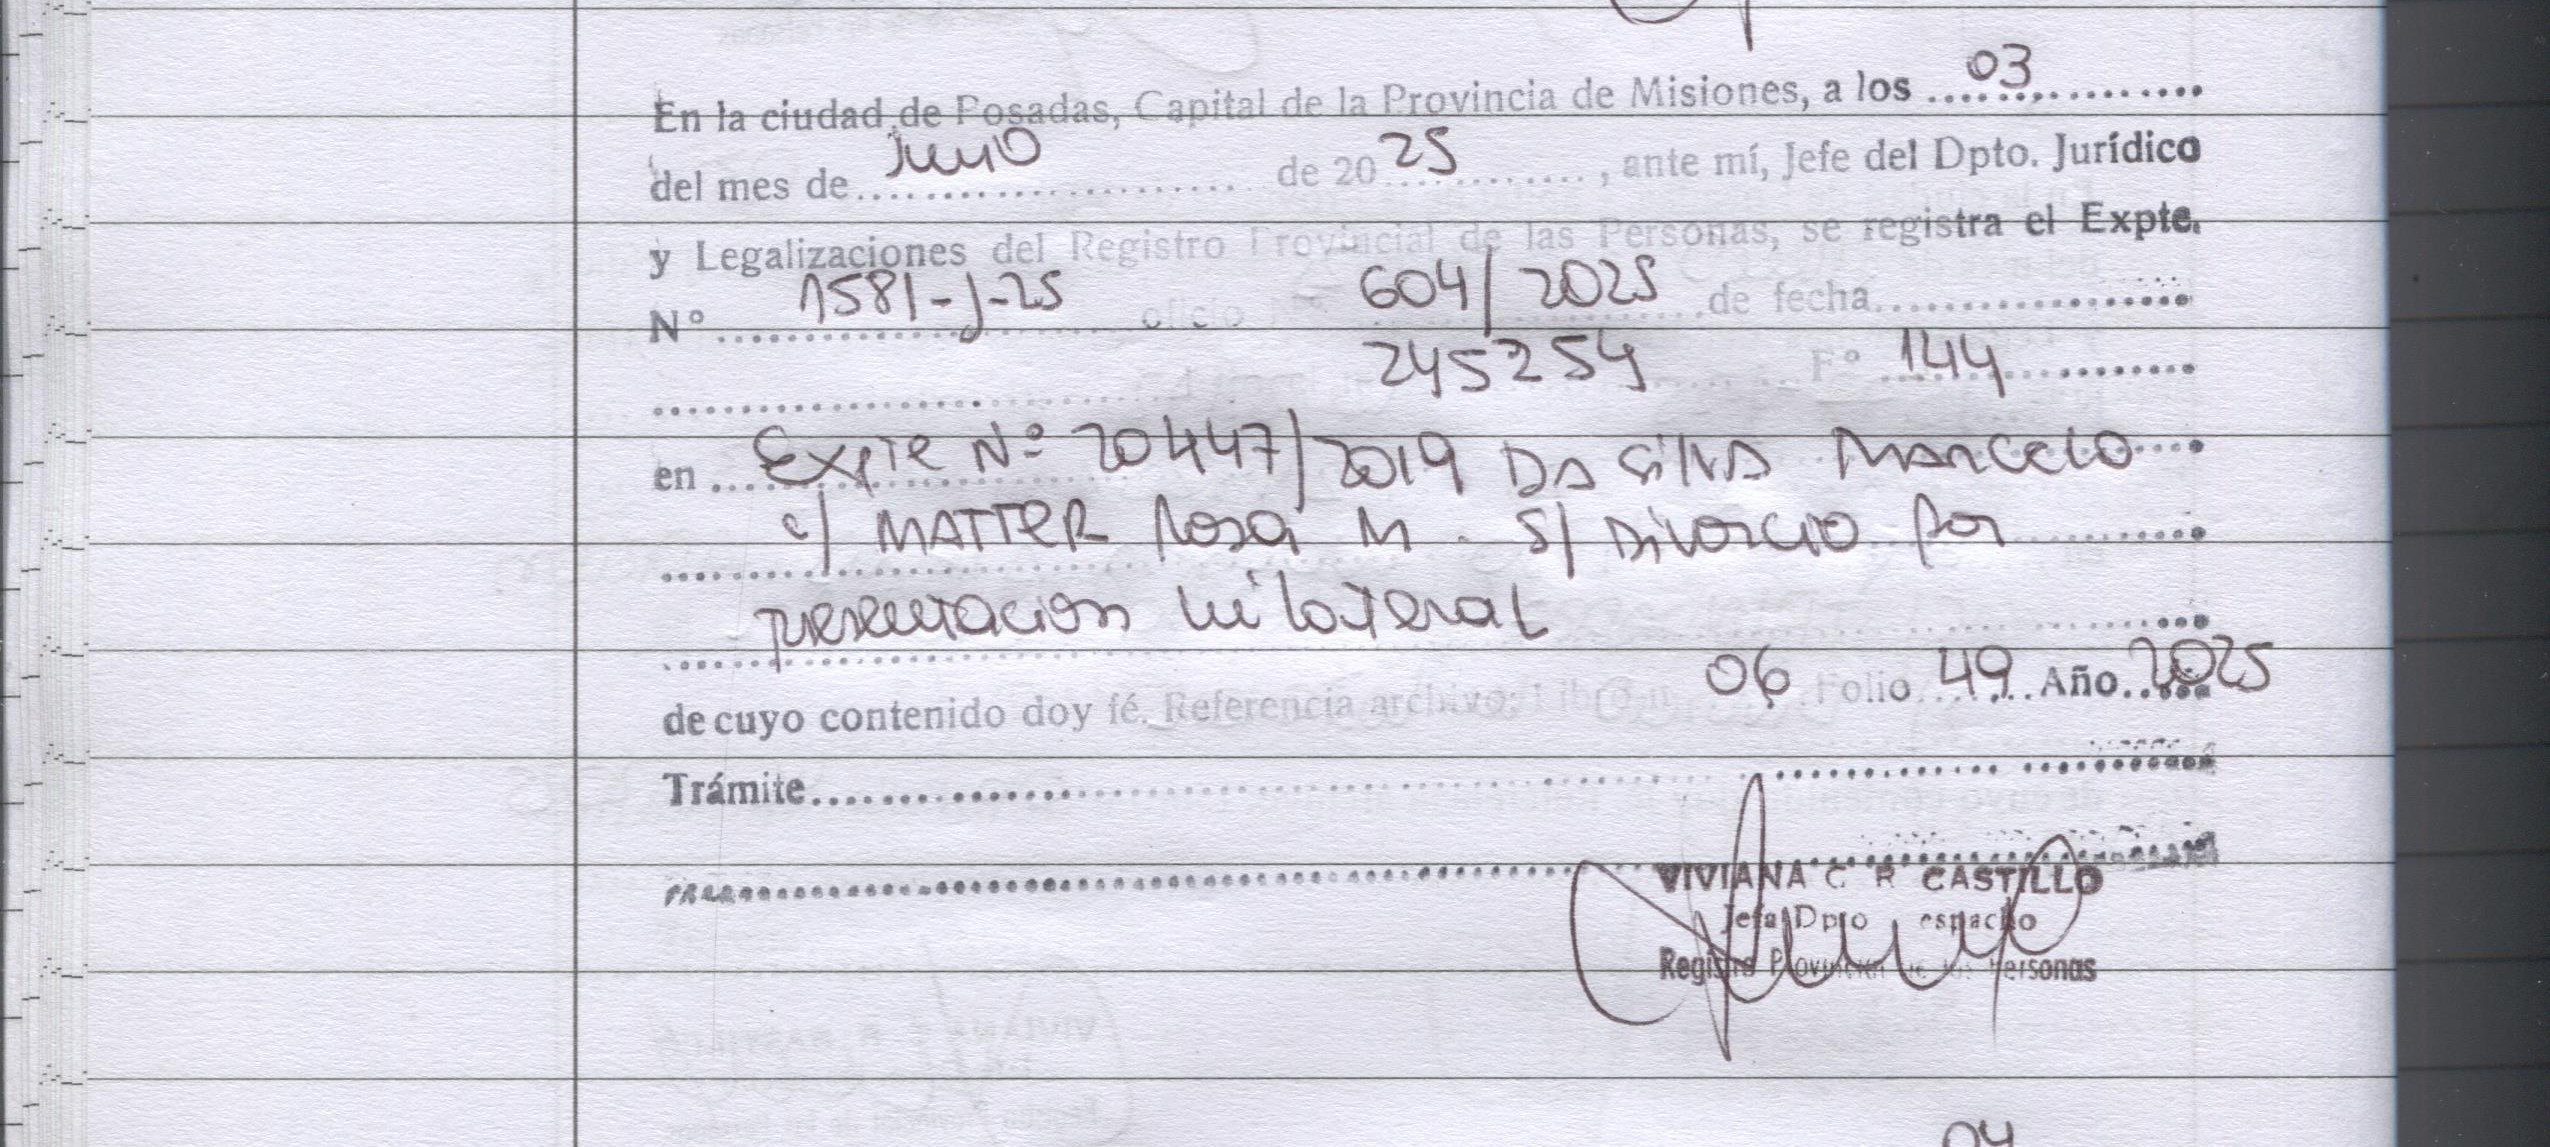 En la ciudad de Posadas, Capital de la Provincia de Misiones, a los 03
del mes de Junio de 20 25, ante mí, Jefe del Dpto. Jurídico
y Legalizaciones del Registro Provincial de las Personas, se registra el Expte.
N° 1581-J-25 oficio N° 604/2025 de fecha
245254 F° 144
en Expte Nº 20447/2019 DA SILVA MARCELO
c/ MATTER Rosa M. S/ Divorcio por
presentacion unilateral
de cuyo contenido doy fé. Referencia archivo: Libro n 06 Folio 49 Año 2025
Trámite
VIVIANA C R CASTILLO
Jefa Dpto espacho
Registro Provincial de las Personas
04